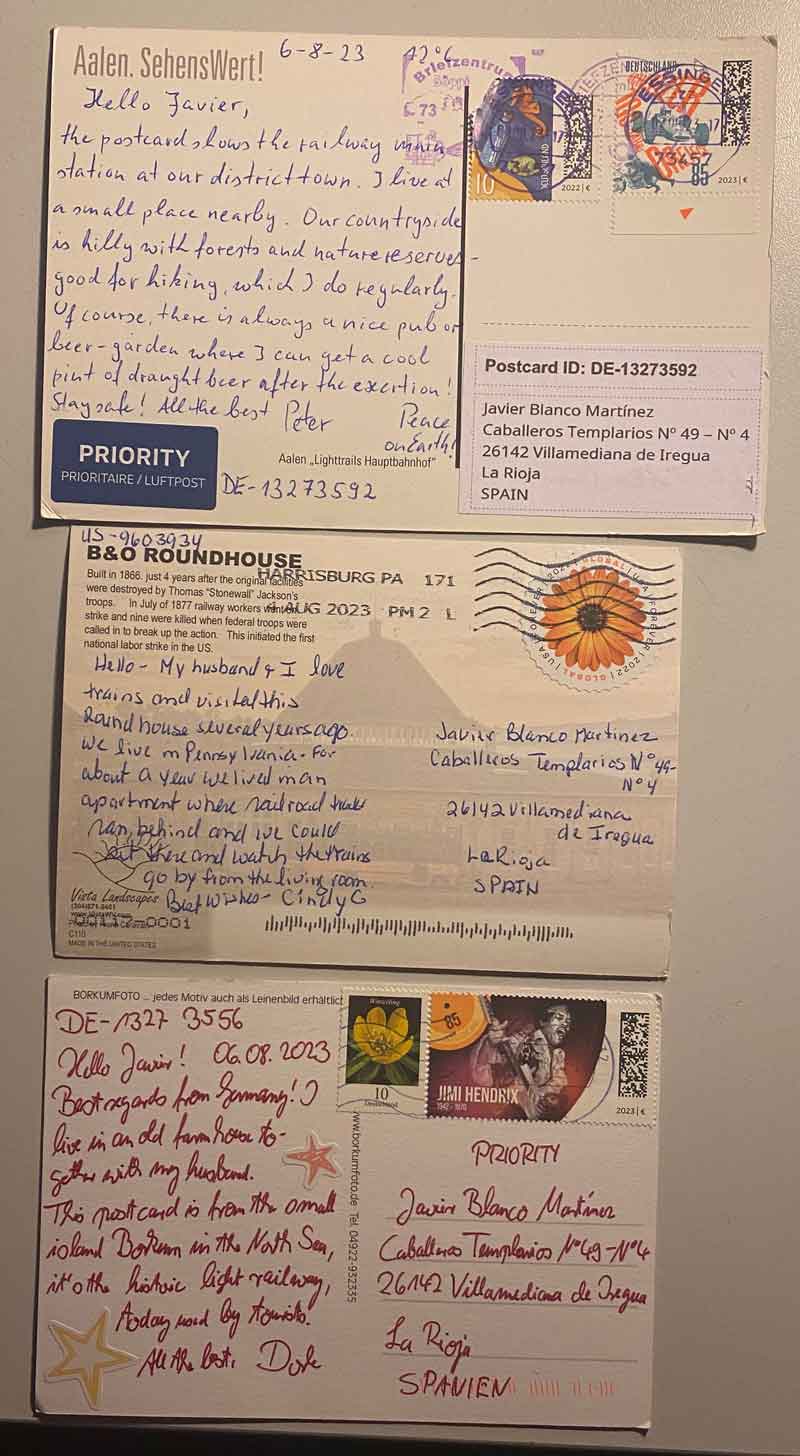 Aalen. SehensWert!
6-8-23
12°C
Briefzentrum
73
Hello Javier,
the postcard shows the railway main
station at our district town. I live at
a small place nearby. Our countryside
is hilly with forests and nature reserves -
good for hiking, which I do regularly.
Of course, there is always a nice pub or
beer-garden where I can get a cool
pint of draught beer after the exertion!
Stay safe! All the best Peter
Peace
on Earth!
PRIORITY
PRIORITAIRE / LUFTPOST
Aalen „Lighttrails Hauptbahnhof“
DE-13273592
10
2022 | €
DEUTSCHLAND
ESSINGEN
73457
85
2023 | €
Postcard ID: DE-13273592
Javier Blanco Martínez
Caballeros Templarios Nº 49 – Nº 4
26142 Villamediana de Iregua
La Rioja
SPAIN
US-9603934
B&O ROUNDHOUSE
Built in 1866. just 4 years after the original facilities
were destroyed by Thomas "Stonewall" Jackson's
troops. In July of 1877 railway workers went on
strike and nine were killed when federal troops were
called in to break up the action. This initiated the first
national labor strike in the US.
HARRISBURG PA 171
4 AUG 2023 PM 2 L
GLOBAL USA FOREVER 2022
Hello - My husband & I love
trains and visited this
Roundhouse several years ago.
We live in Pennsylvania - For
about a year we lived in an
apartment where railroad tracks
ran behind and we could
sit there and watch the trains
go by from the living room.
Best Wishes - Cindy G
Vista Landscapes
(304)671-3401
C110
MADE IN THE UNITED STATES
Javier Blanco Martinez
Caballeros Templarios Nº 49-
Nº 4
26142 Villamediana
de Iregua
La Rioja
SPAIN
BORKUMFOTO ... jedes Motiv auch als Leinenbild erhältlich
DE-1327 3556
Hello Javier! 06.08.2023
Best regards from Germany! I
live in an old farmhouse to-
gether with my husband.
This postcard is from the small
island Borkum in the North Sea,
it's the historic light railway,
today used by tourists.
All the best, Dörte
www.borkumfoto.de Tel. 04922-932335
Winterling
10
Deutschland
85
JIMI HENDRIX
1942 - 1970
2023 | €
PRIORITY
Javier Blanco Martínez
Caballeros Templarios Nº49-Nº4
26142 Villamediana de Iregua
La Rioja
SPANIEN